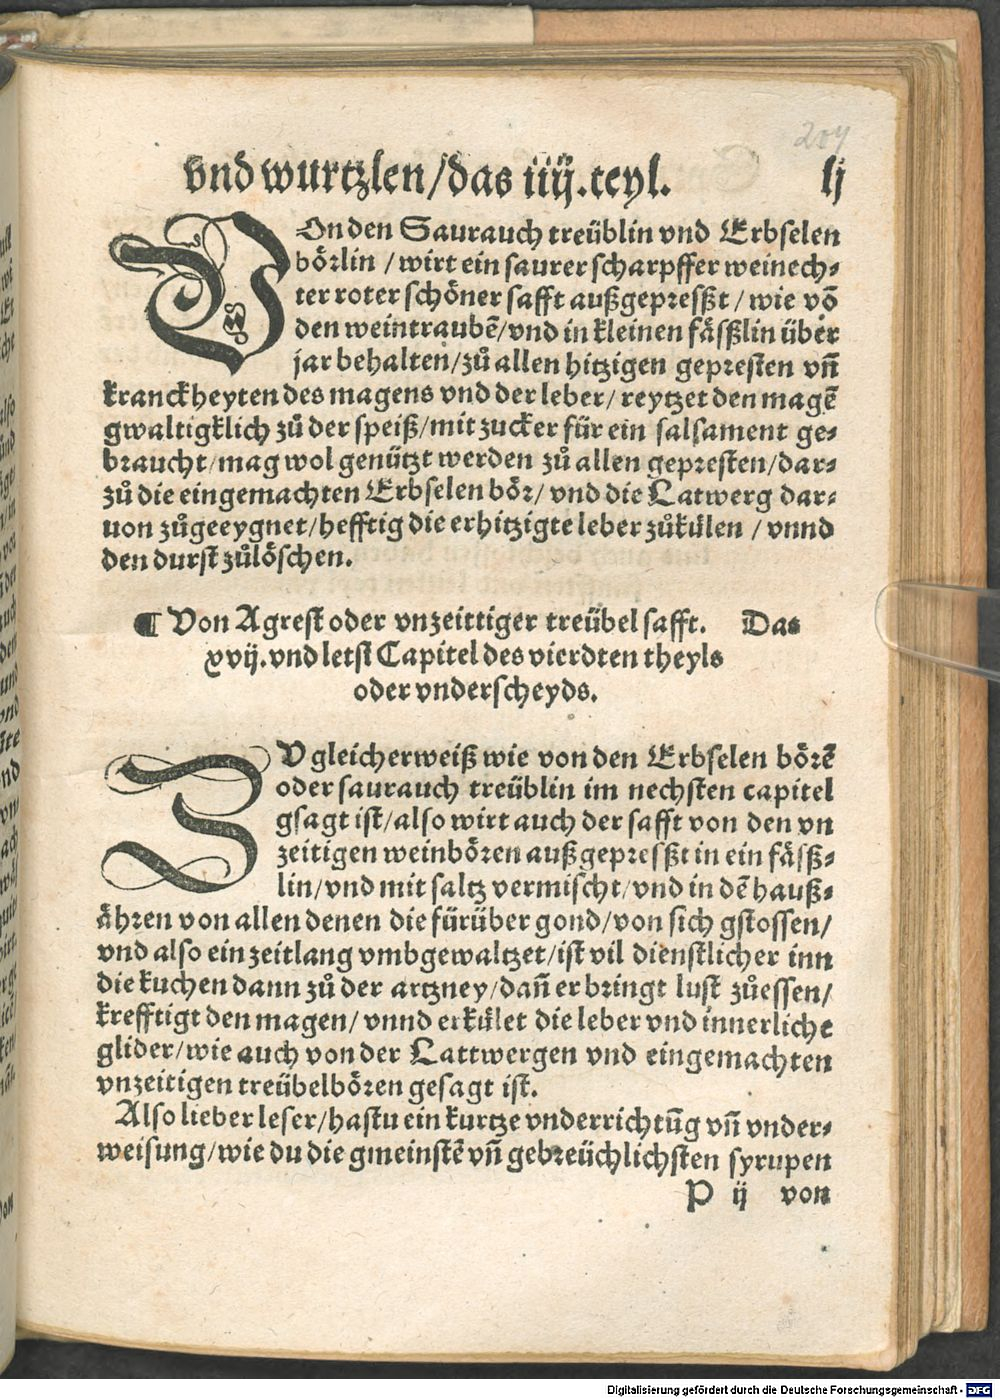 204
vnd wurtzlen/das iiij.teyl. lj
VOn den Saurauch treüblin vnd Erbselen
börlin / wirt ein saurer scharpffer weinech⸗
ter roter schöner safft außgepresßt / wie võ
den weintraubẽ/vnd in kleinen fäsßlin über
jar behalten/zů allen hitzigen gepresten vñ
kranckheyten des magens vnd der leber/ reytzet den magẽ
gwaltigklich zů der speiß/mit zucker für ein salsament ge⸗
braucht/mag wol genützt werden zů allen gepresten/dar⸗
zů die eingemachten Erbselen bör/ vnd die Latwerg dar⸗
uon zůgeeygnet/hefftig die erhitzigte leber zůkülen / vnnd
den durst zůlöschen.
¶ Von Agrest oder vnzeittiger treübel safft. Das
xvij.vnd letst Capitel des vierdten theyls
oder vnderscheyds.
ZV gleicherweiß wie von den Erbselen börẽ
oder saurauch treüblin im nechsten capitel
gsagt ist/also wirt auch der safft von den vn
zeitigen weinbören außgepresßt in ein fäsß⸗
lin/vnd mit saltz vermischt/vnd in dẽ hauß⸗
ähren von allen denen die fürüber gond/von sich gstossen/
vnd also ein zeitlang vmbgewaltzet/ist vil dienstlicher inn
die kuchen dann zů der artzney/dañ er bringt lust zůessen/
krefftigt den magen/ vnnd erkület die leber vnd innerliche
glider/wie auch von der Lattwergen vnd eingemachten
vnzeitigen treübelbören gesagt ist.
Also lieber leser/hastu ein kurtze vnderrichtũg vñ vnder⸗
weisung/wie du die gmeinstẽ vñ gebreüchlichsten syrupen
P ij von
Digitalisierung gefördert durch die Deutsche Forschungsgemeinschaft - DFG